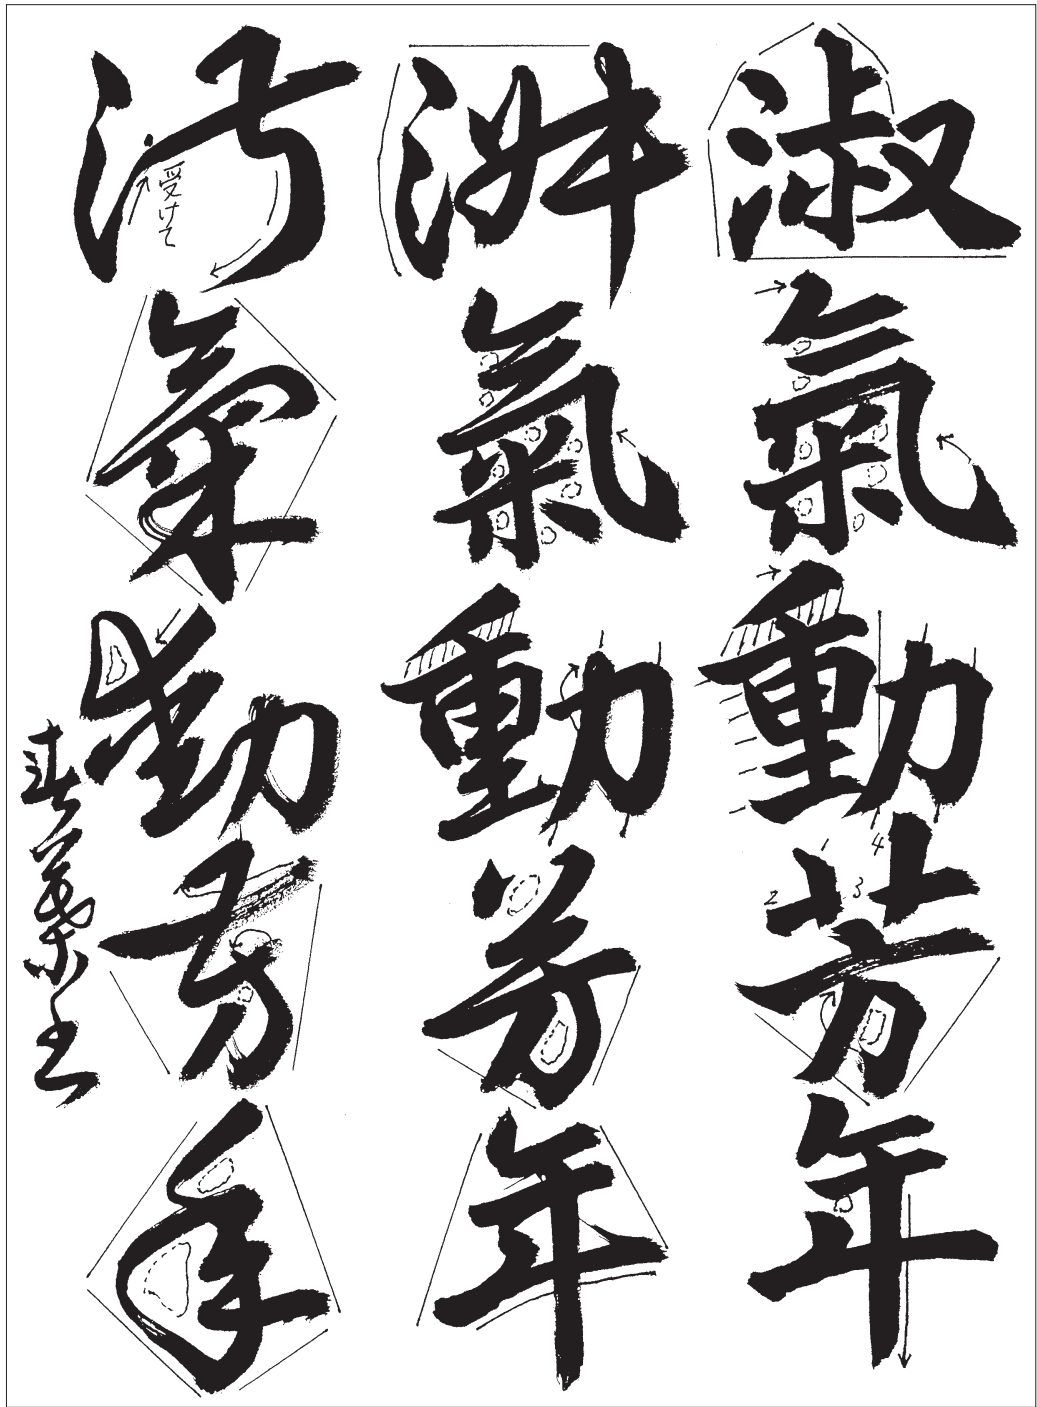 淑氣動芳年
淑氣動芳年
淑氣動芳年
受けて
1
2
3
4